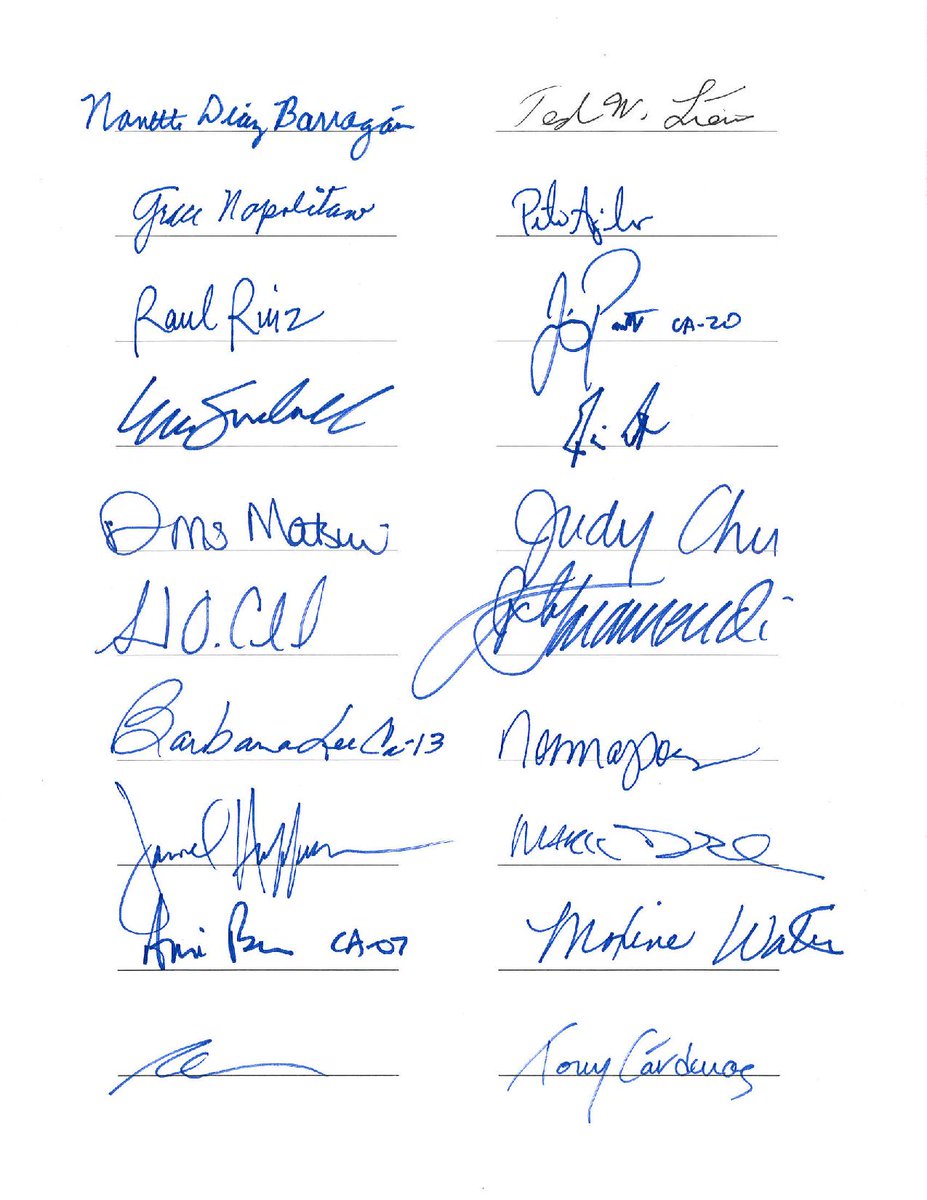 Nanette Diaz Barragán
Ted W. Lieu
Grace Napolitano
Pete Aguilar
Raul Ruiz
Jimmy Panetta CA-20
Doris Matsui
Judy Chu
Garamendi
Barbara Lee CA-13
Norma
Jared Huffman
Mark
Ami Bera CA-07
Maxine Waters
Tony Cárdenas